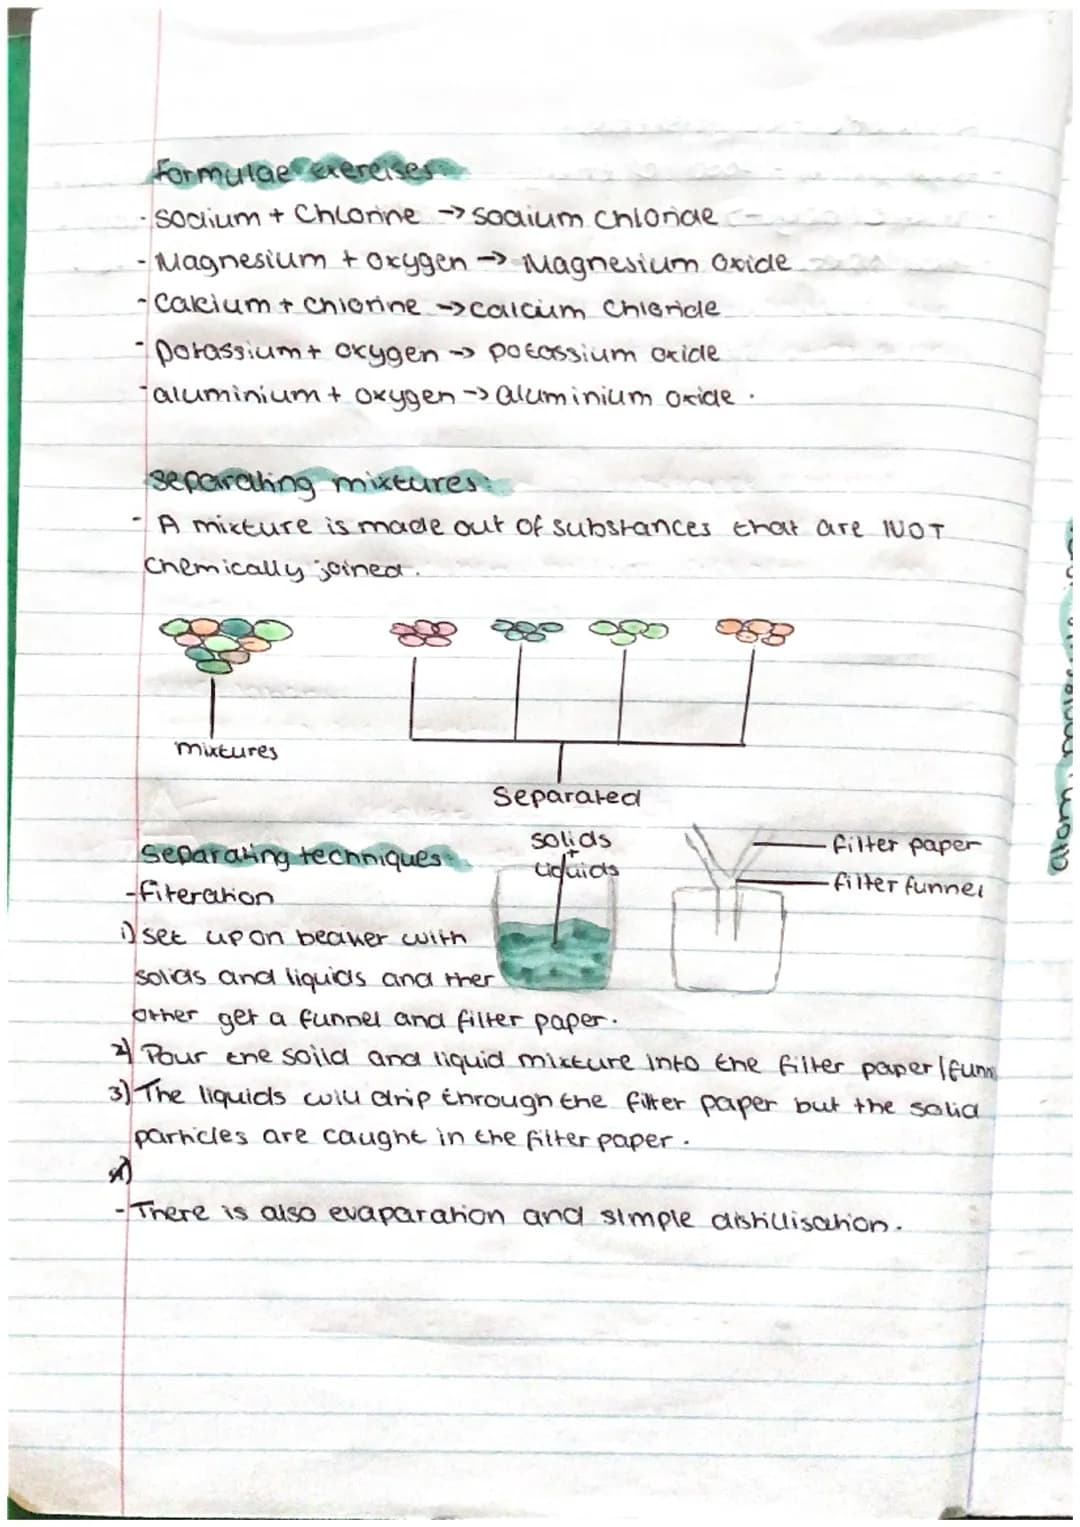 Formulae exercises
- Sodium + Chlorine → sodium chloride
- Magnesium + oxygen → Magnesium oxide
- Calcium + chlorine → calcium chloride
- potassium + oxygen → potassium oxide
- aluminium + oxygen → aluminium oxide.
Separating mixtures:
- A mixture is made out of substances that are NOT
chemically joined.
mixtures
Separated
Separating techniques
- fiteration
1) set up on beaker with
solids and liquids and ther
other get a funnel and filter paper.
solids
+
liquids
filter paper
filter funnel
2) Pour the soild and liquid mixture into the filter paper/funn
3) The liquids will drip through the filter paper but the solid
particles are caught in the filter paper.
- There is also evaparation and simple distillisation.